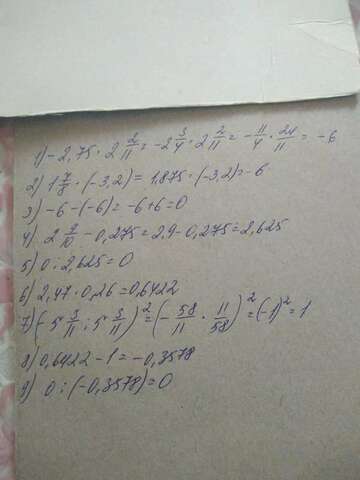 1) -2,75 · 2 2/11 = -2 3/4 · 2 2/11 = -11/4 · 24/11 = -6
2) 1 7/8 · (-3,2) = 1,875 · (-3,2) = -6
3) -6 - (-6) = -6 + 6 = 0
4) 2 9/10 - 0,275 = 2,9 - 0,275 = 2,625
5) 0 : 2,625 = 0
6) 2,47 · 0,26 = 0,6422
7) (-5 3/11 : 5 3/11)² = (-58/11 · 11/58)² = (-1)² = 1
8) 0,6422 - 1 = -0,3578
9) 0 : (-0,3578) = 0